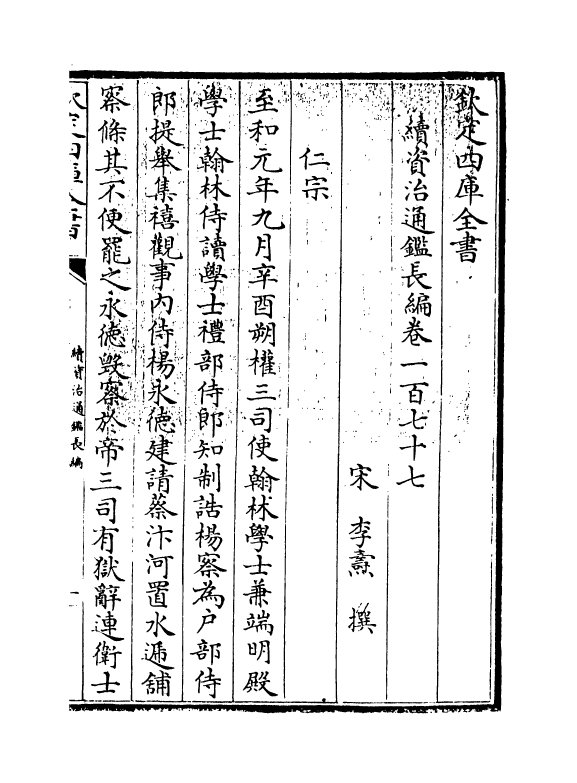 欽定四庫全書
續資治通鑑長編卷一百七十七
宋 李燾 撰
仁宗
至和元年九月辛酉朔權三司使翰林學士兼端明殿
學士翰林侍讀學士禮部侍郎知制誥楊察為户部侍
郎提舉集禧觀事内侍楊永徳建請蔡汴河置水遞舖
察條其不便罷之永徳毁察於帝三司有獄辭連衛士
欽定四庫全書
續資治通鑑長編
一